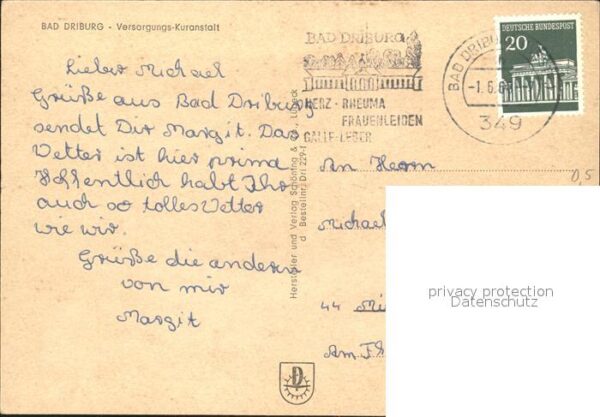 BAD DRIBURG - Versorgungs-Kuranstalt
Lieber Michael
Grüße aus Bad Driburg
sendet Dir Margit. Das
Wetter ist hier prima
Hoffentlich habt Ihr
auch so tolles Wetter
wie wir.
Grüße die anderen
von mir
Margit
Hersteller und Verlag Schöning & Co., Lübeck
Bestellnr. Dri 229-f
BAD DRIBURG
HERZ - RHEUMA
FRAUENLEIDEN
GALLE-LEBER
BAD DRIBURG
-1.6.6
349
DEUTSCHE BUNDESPOST
20
An Herrn
0,5
Michael
44
Am
privacy protection
Datenschutz